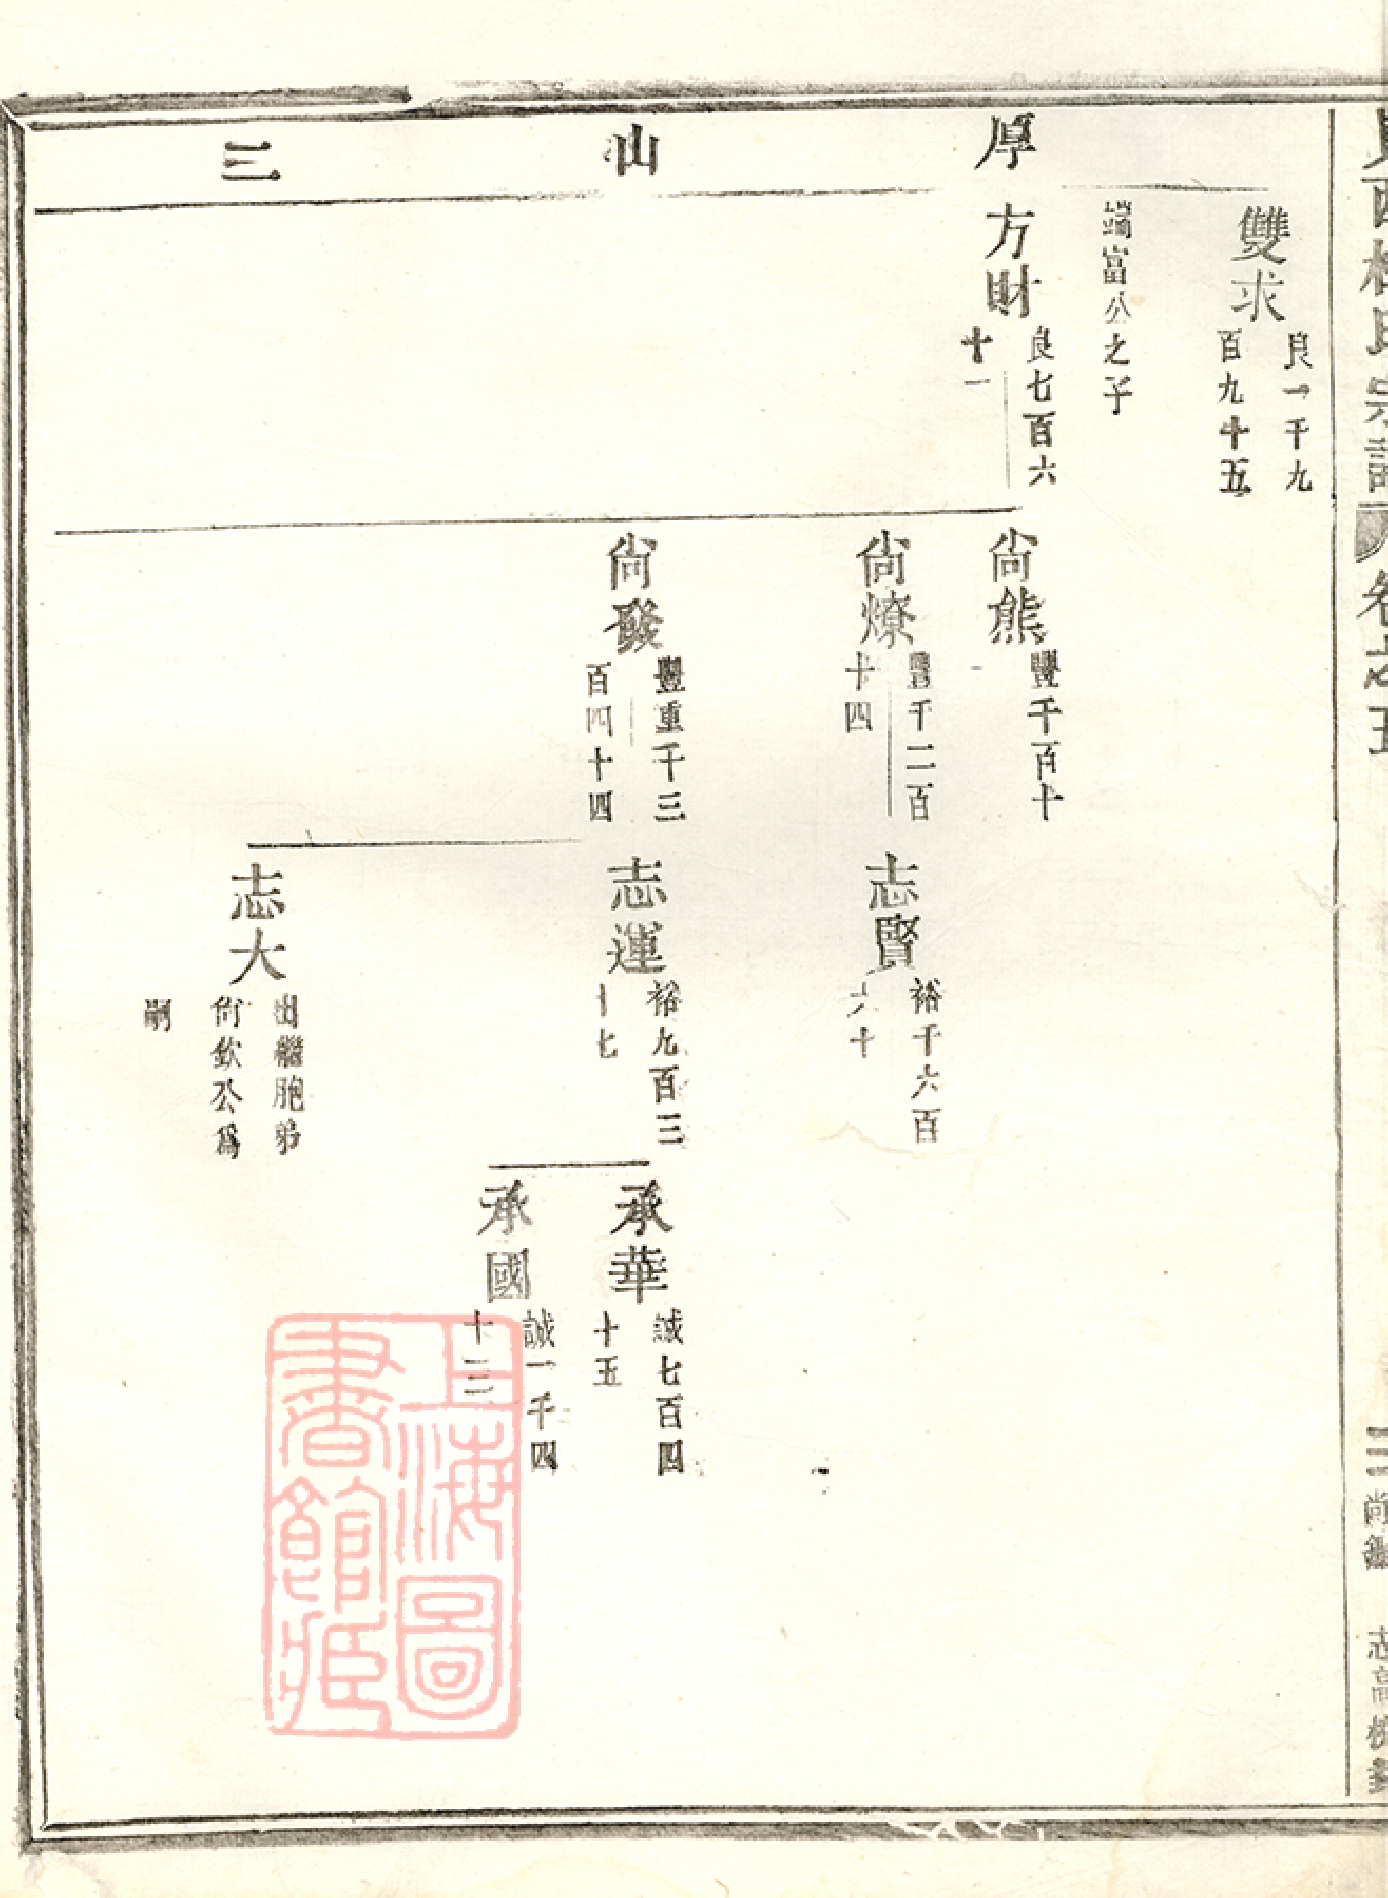 厚山三
雙求
良一千九
百九十五
端富公之子
方財
良七百六
十一
尙熊
豐千百十
一
尙燎
豐千二百
十四
尙發
豐重千三
百四十四
志賢
裕千六百
六十
志運
裕九百三
十七
志大
出繼胞弟
尙欽公爲
嗣
承華
誠七百四
十五
承國
誠一千四
十三
上海圖
書館藏
卷之五
三
尙
志高